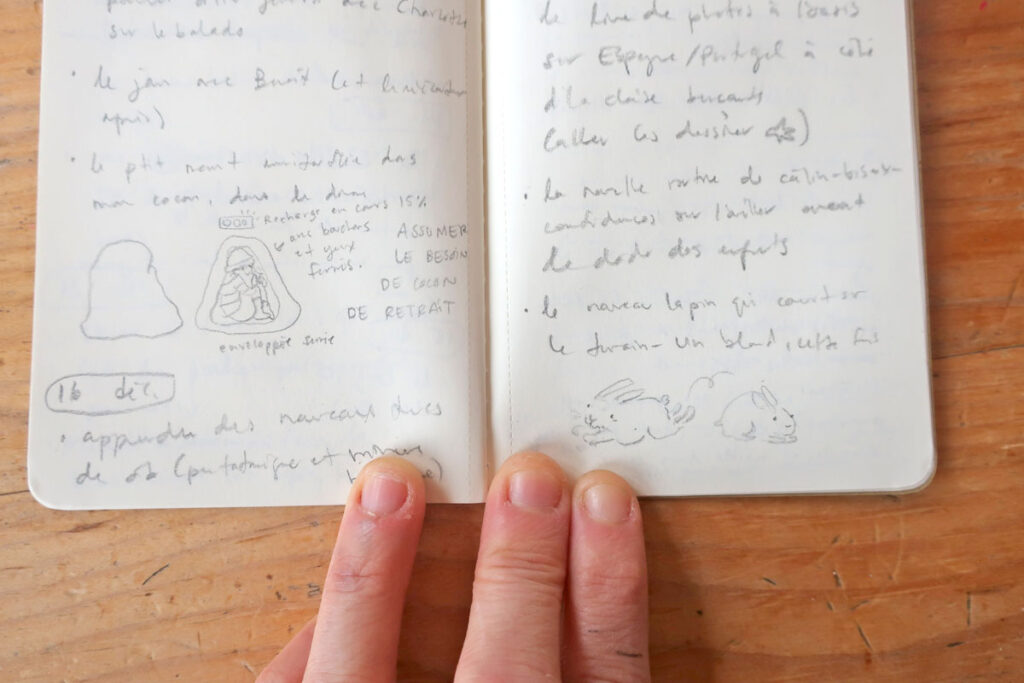 avec Charlotte
sur le balado
• le jam avec Benoît (et le
après)
• le ptit mont emmitouflée dans
mon cocon, dans le divan
Recharge en cours 15%
avec bouchons
et yeux
fermés.
ASSUMER
LE BESOIN
DE COCON
DE RETRAIT
enveloppée
16 déc.
• apprendre des nouveaux
de (pentatonique et mineure
de photos à
sur Espagne/Portugal à côté
d'la chaise
(aller les dessiner ☆)
• la nouvelle routine de câlin-bisou-
confidences sur l'oreiller avant
le dodo des enfants
• le nouveau lapin qui court sur
le terrain - un blond, cette fois